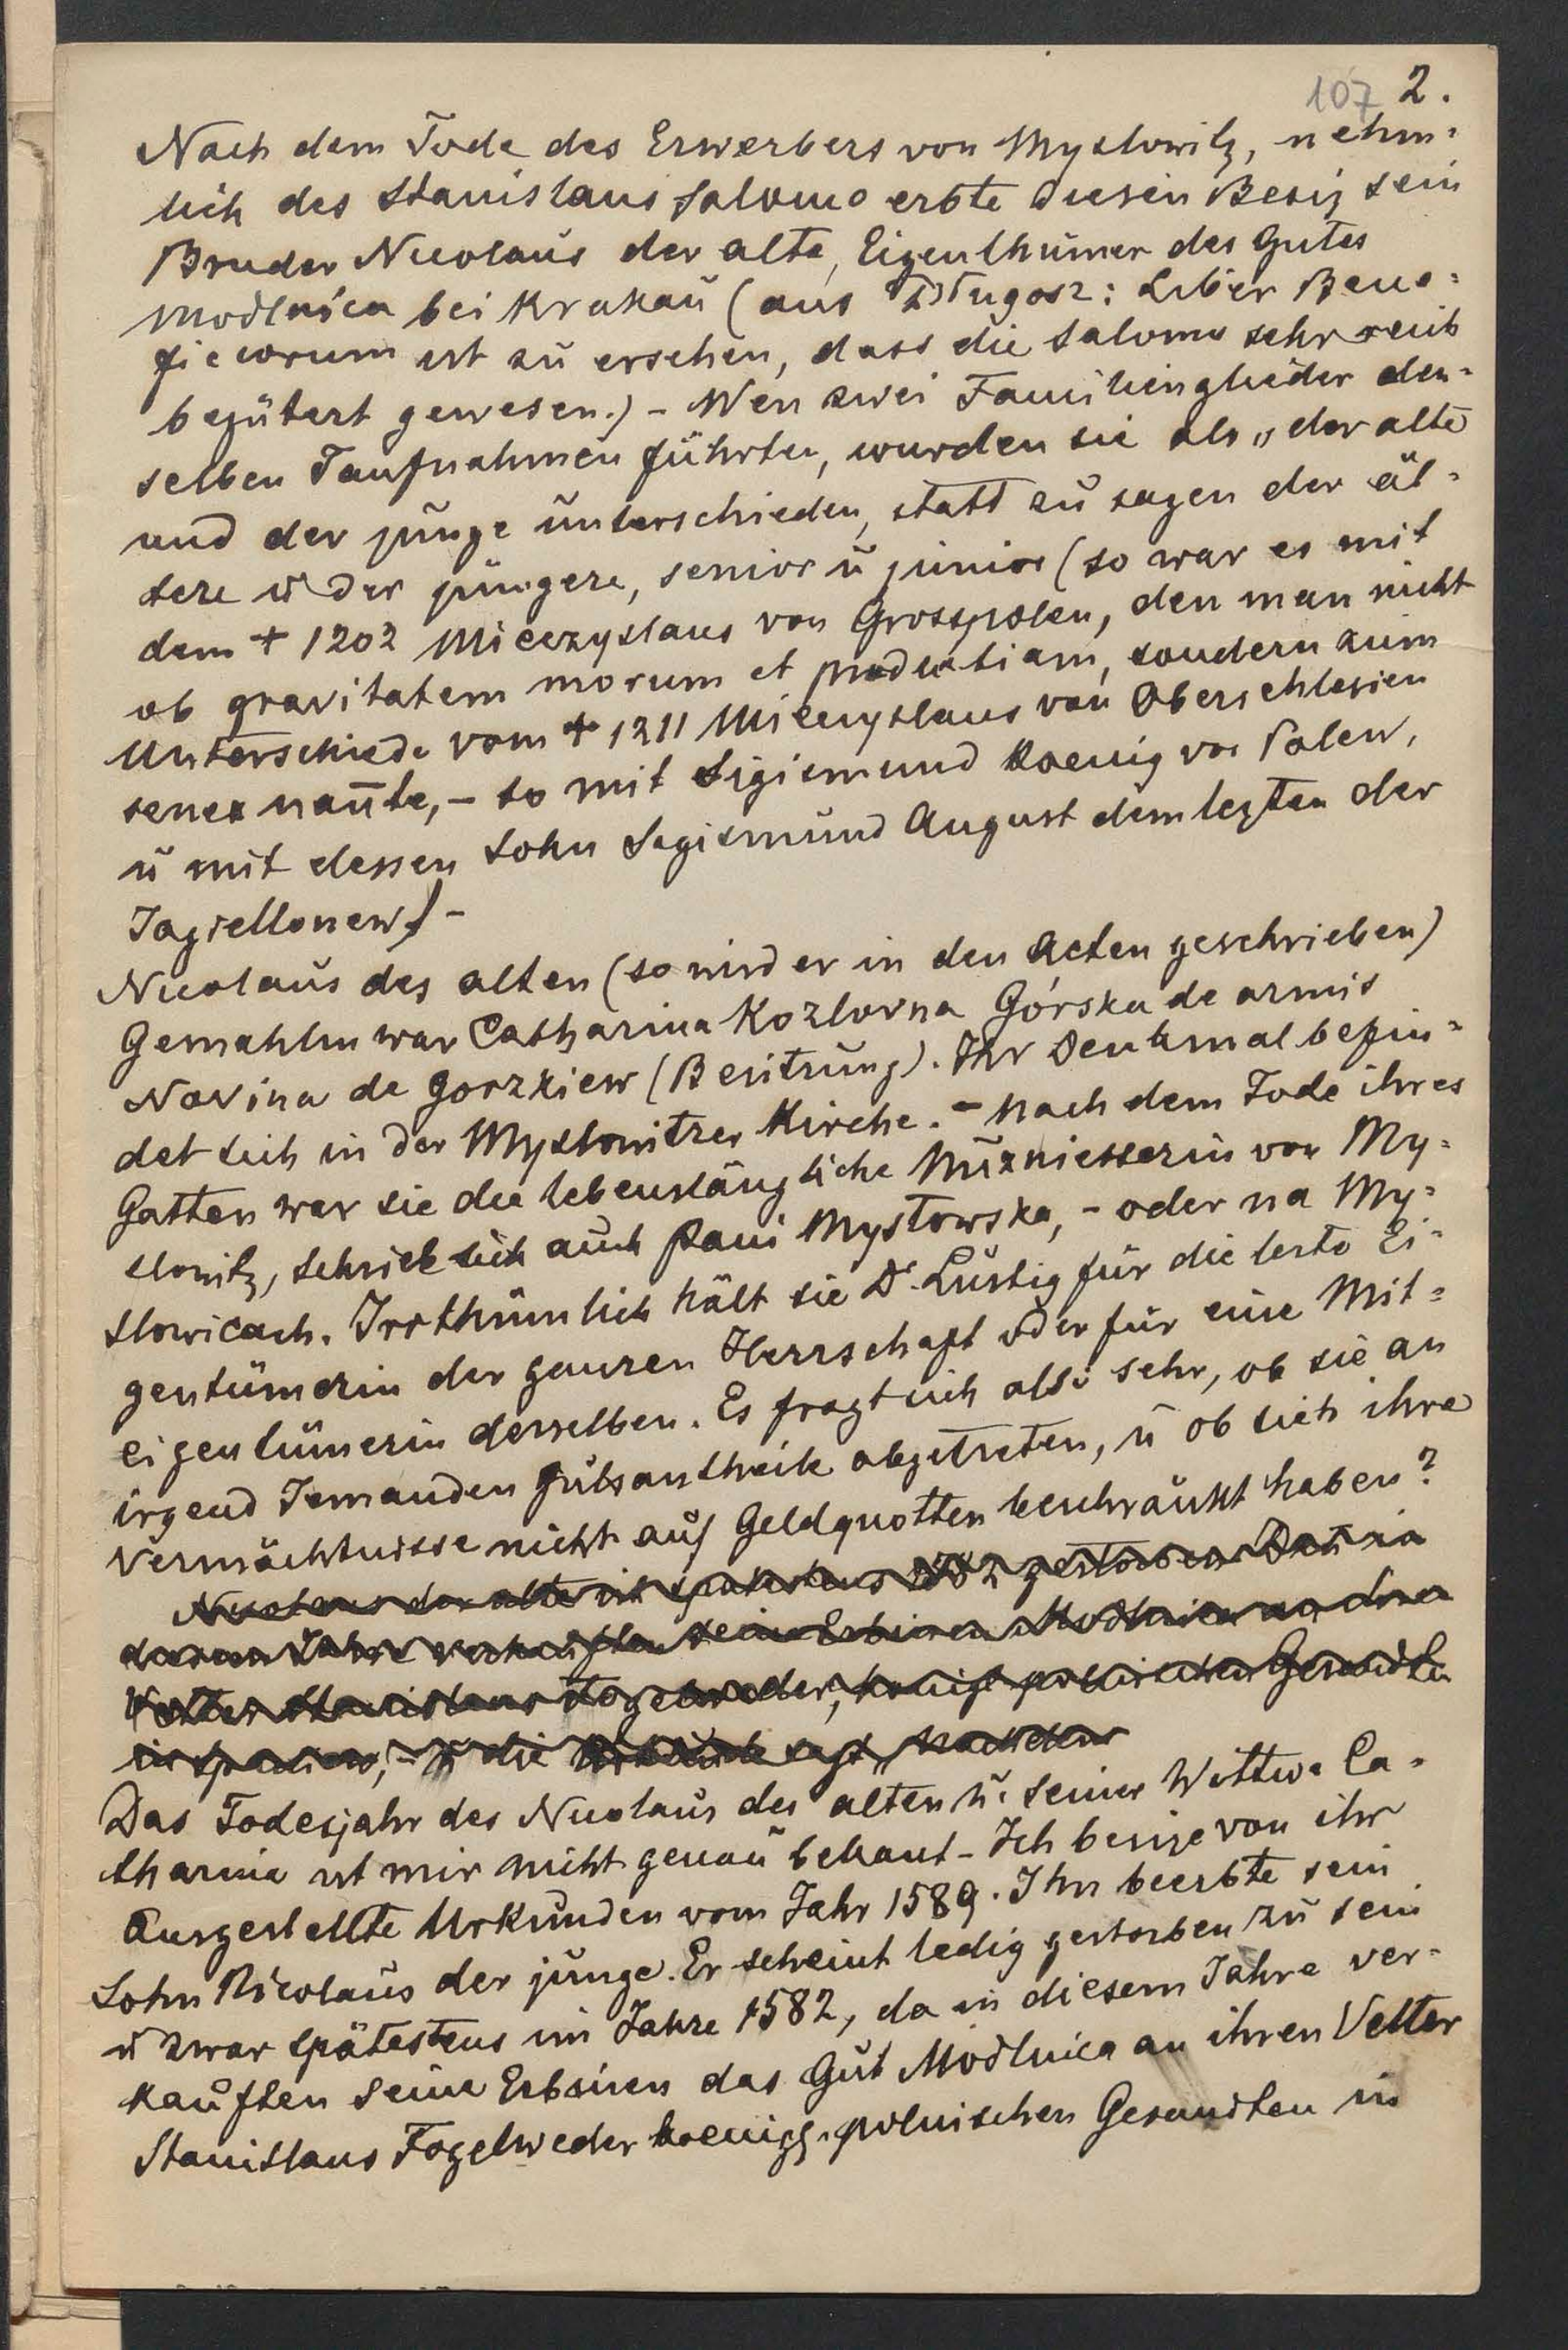 107 2.
Nach dem Tode des Erwerbers von Myslowitz, nehm=
lich des Stanislaus Salomo erbte diesen Besiz sein
Bruder Nicolaus der alte, Eigenthümer des Gutes
Modlnica bei Krakau (aus Długosz: Liber Bene=
ficiorum ist zu ersehen, dass die Salomo sehr reich
begütert gewesen.) - Wen zwei Familienglieder den=
selben Taufnahmen führten, wurden sie als „der alte
und der junge unterschieden, statt zu sagen der äl=
tere u der jüngere, senior u junior (so war es mit
dem + 1202 Mieczyslaus von Grosspolen, den man nicht
ob gravitatem morum et prudentiam, sondern zum
Unterschiede vom + 1211 Mieczyslaus von Oberschlesien
senex nante, - so mit Sigismund Koenig von Polen,
u mit dessen Sohn Sigismund August dem lezten der
Jagiellonen) -
Nicolaus des alten (so wird er in den Acten geschrieben)
Gemahlin war Catharina Kozlowna Górska de armis
Novina de Gorzkiew (Besitzung). Ihr Denkmal befin=
det sich in der Myslowitzer Kirche. - Nach dem Tode ihres
Gatten war sie die lebenslängliche Nuzniesserin von My=
slowitz, schrieb sich auch Pani Mysłowska, - oder na My=
slowicach. Irrthümlich hält sie Dr Lustig für die lezte Ei=
gentümerin der ganzen Herrschaft oder für eine Mit=
eigentümerin derselben. Es fragt sich also sehr, ob sie an
irgend Jemanden Gutsantheile abgetreten, u ob sich ihre
Vermächtnisse nicht auf Geldquotten beschränkt haben?
Nicolaus der alte ist spätestens gestorben Den in
Jahre verkauften seine Erbinen Modlnica an den
Vetter Stanislaus Fogelweder, königl polnischen Gesandten
in Spanien, - u die Urkunde sagt, nachdem
Das Todesjahr des Nicolaus des alten u. seiner Wittwe Ca=
tharina ist mir nicht genau bekant - Ich besize von ihr
ausgestellte Urkunden vom Jahr 1589. Ihn beerbte sein
Sohn Nicolaus der junge. Er scheint ledig gestorben zu sein
u zwar spätestens im Jahre 1582, da in diesem Jahre ver=
kauften seine Erbsinen das Gut Modlnica an ihren Vetter
Stanislaus Fogelweder koenigl. polnischen Gesandten in